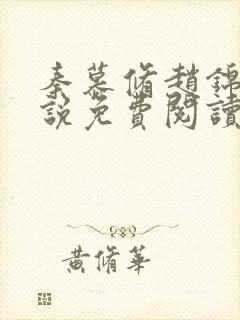 秦慕脩趙錦
說免費閱讀
黃脩華